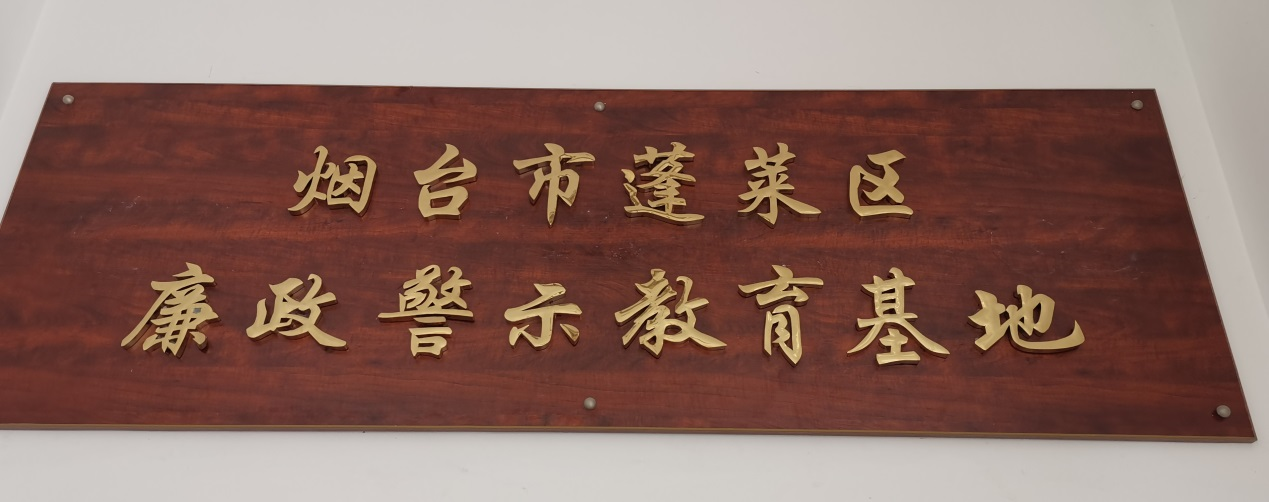 烟台市蓬莱区
廉政警示教育基地